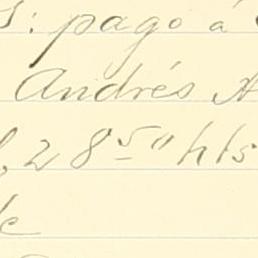 s: pago á
Andrés A
28 5" hts
de